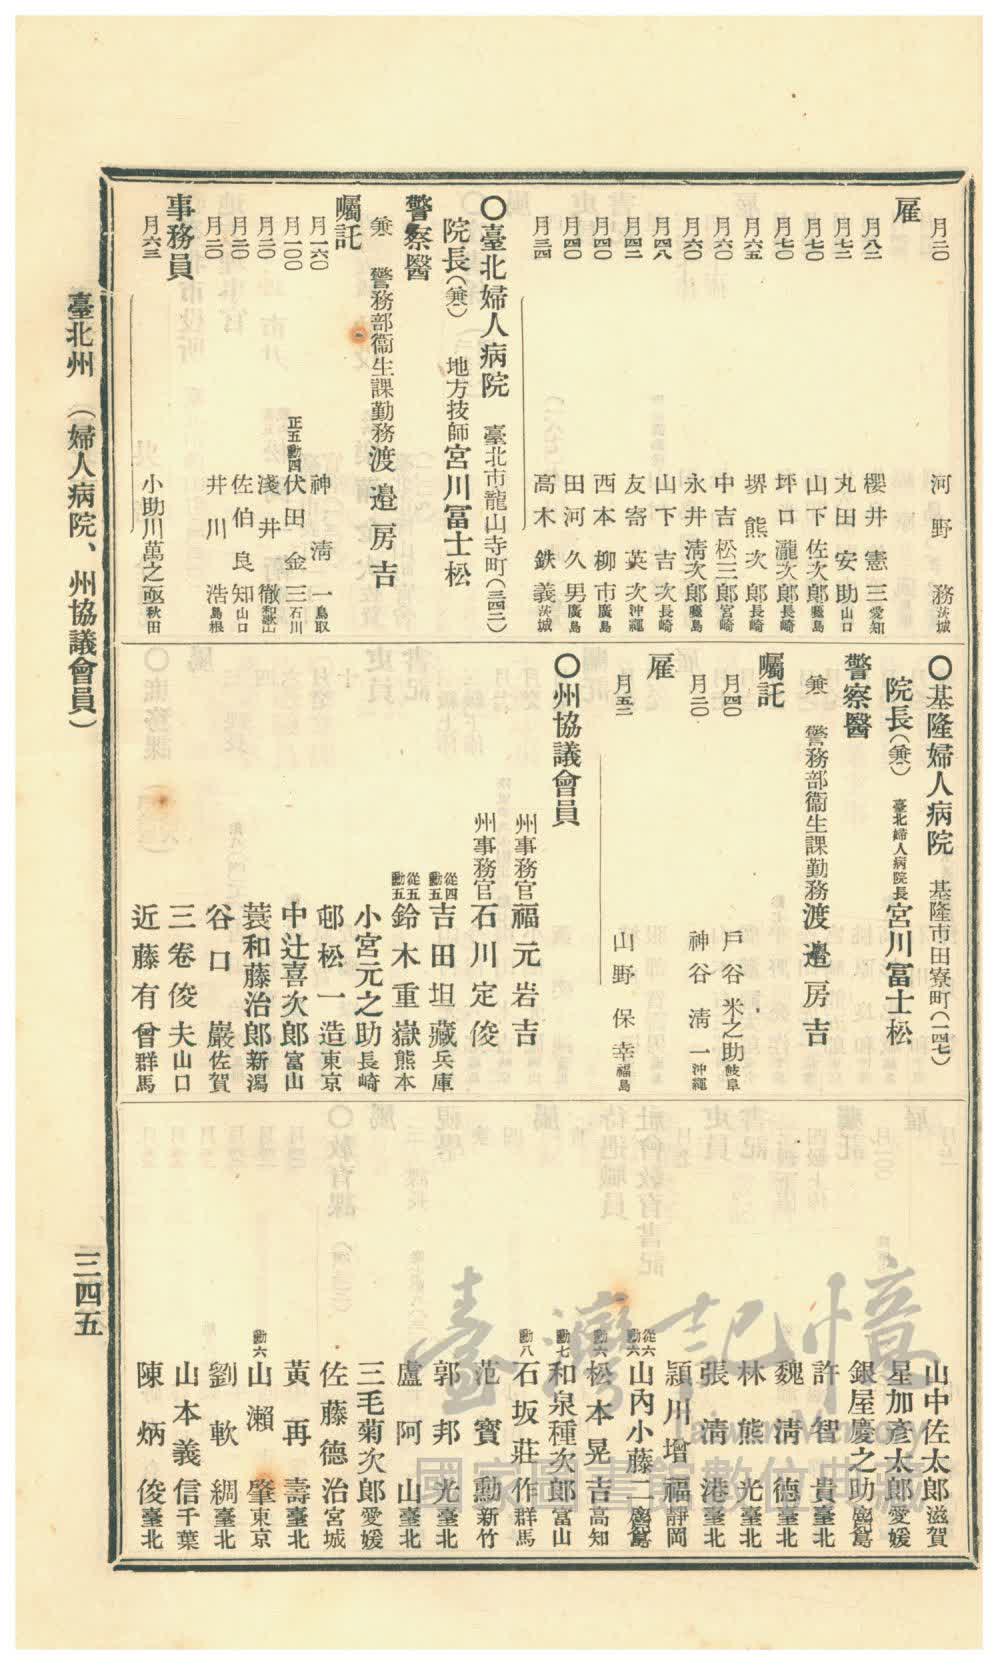 月二〇 河野務 茨城
雇
月八二 櫻井憲三 愛知
月七二 丸田安助 山口
月七〇 山下佐次郎
月七〇 坪口瀧次郎 長崎
月六五 堺熊次郎 長崎
月六〇 中吉松三郎 宮崎
月六〇 永井淸次郎
月四八 山下吉次 長崎
月四二 友寄英次 沖繩
月四〇 西本柳市 廣島
月四〇 田河久男 廣島
月三四 高木鉄義 茨城
〇臺北婦人病院 臺北市龍山寺町(三四二)
院長(兼) 地方技師 宮川冨士松
警察醫
兼 警務部衞生課勤務 渡邉房吉
囑託
月一六〇 神淸一 鳥取
月一〇〇 正五勳四 伏田金三 石川
月二〇 淺井徹 和歌山
月二〇 佐伯良知 山口
月二〇 井川浩 島根
事務員
月六三 小助川萬之亟 秋田
〇基隆婦人病院 基隆市田寮町(一四七)
院長(兼) 臺北婦人病院長 宮川冨士松
警察醫
兼 警務部衞生課勤務 渡邉房吉
囑託
月四〇 戸谷米之助 岐阜
月二〇 神谷淸一 沖繩
雇
月五二 山野保幸 福島
〇州協議會員
州事務官 福元岩吉
州事務官 石川定俊
從四勳五 吉田坦藏 兵庫
從五勳五 鈴木重嶽 熊本
小宮元之助 長崎
邨松一造 東京
中辻喜次郎 富山
蓑和藤治郎 新潟
谷口巖 佐賀
三卷俊夫 山口
近藤有曾 群馬
山中佐太郎 滋賀
星加彥太郎 愛媛
銀屋慶之助
許智貴 臺北
魏淸德 臺北
林熊光 臺北
張淸港 臺北
頴川增福 靜岡
從六勳六 山內小藤一
勳六 松本晃吉 高知
勳七 和泉種次郎 富山
勳八 石坂莊作 群馬
范寶勳 新竹
郭邦光 臺北
盧阿山 臺北
三毛菊次郎 愛媛
佐藤德治 宮城
黃再壽 臺北
勳六 山瀨肇 東京
劉軟綢 臺北
山本義信 千葉
陳炳俊 臺北
臺北州 (婦人病院、州協議會員)
三四五
臺灣記憶
Taiwan Memory
國家圖書館數位典藏